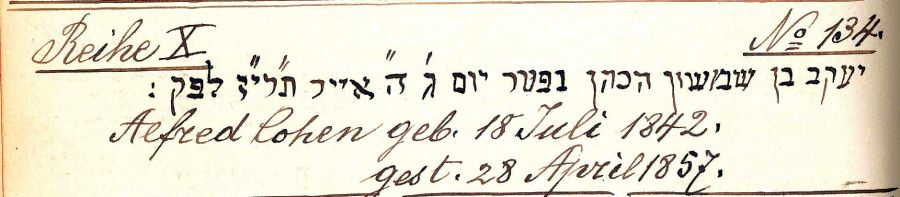 Reihe X No 134.
יעקב בן שמשון הכהן נפטר יום ג׳ ה״ אייר תרי״ז לפק :
Alfred Cohen geb. 18 Juli 1842.
gest. 28 April 1857.